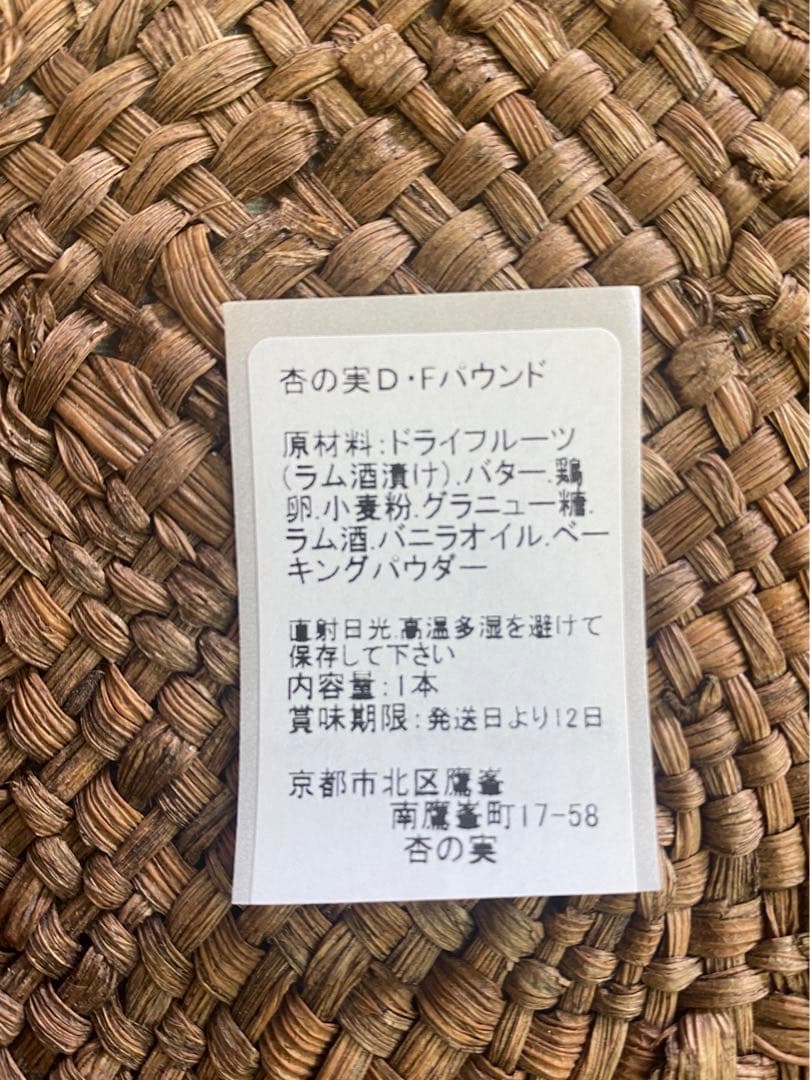 杏の実D・Fパウンド
原材料:ドライフルーツ
(ラム酒漬け).バター.鶏
卵.小麦粉.グラニュー糖.
ラム酒.バニラオイル.ベー
キングパウダー
直射日光.高温多湿を避けて
保存して下さい
内容量:1本
賞味期限:発送日より12日
京都市北区鷹峯
南鷹峯町17-58
杏の実